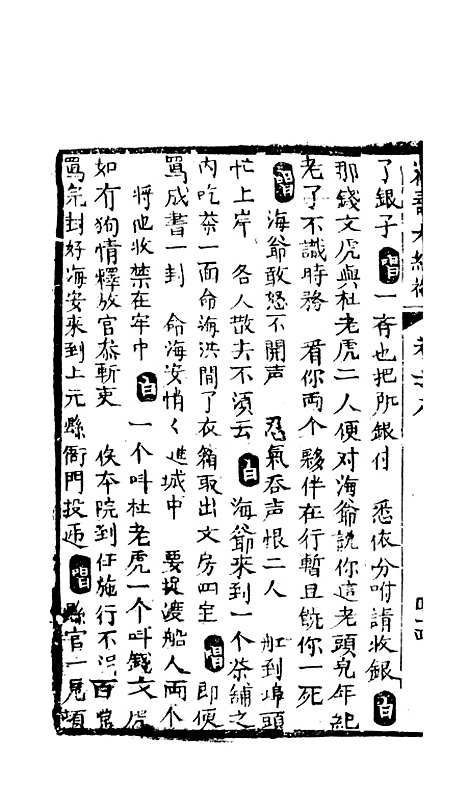 了銀子唱一齊也把所銀付　悉依分咐請收銀白
那錢文虎與杜老虎二人便对海爺説你這老頭兒年紀
老了不識時務　看你両个夥伴在行暫且饒你一死
唱海爺敢怒不開声　忍氣吞声恨二人　舡到埠頭
忙上岸　各人散去不須云白海爺來到一个茶舖之
内吃茶一面命海洪開了衣箱取出文房四宝唱即便
寫成書一封　命海安悄く進城中　要捉渡船人両个
将他收禁在牢中白一个叫杜老虎一个叫錢文虎
如有狗情釋放官恭斬吏　俟本院到任施行不
寫完封好海安來到上元縣衙門投逓唱縣官一見